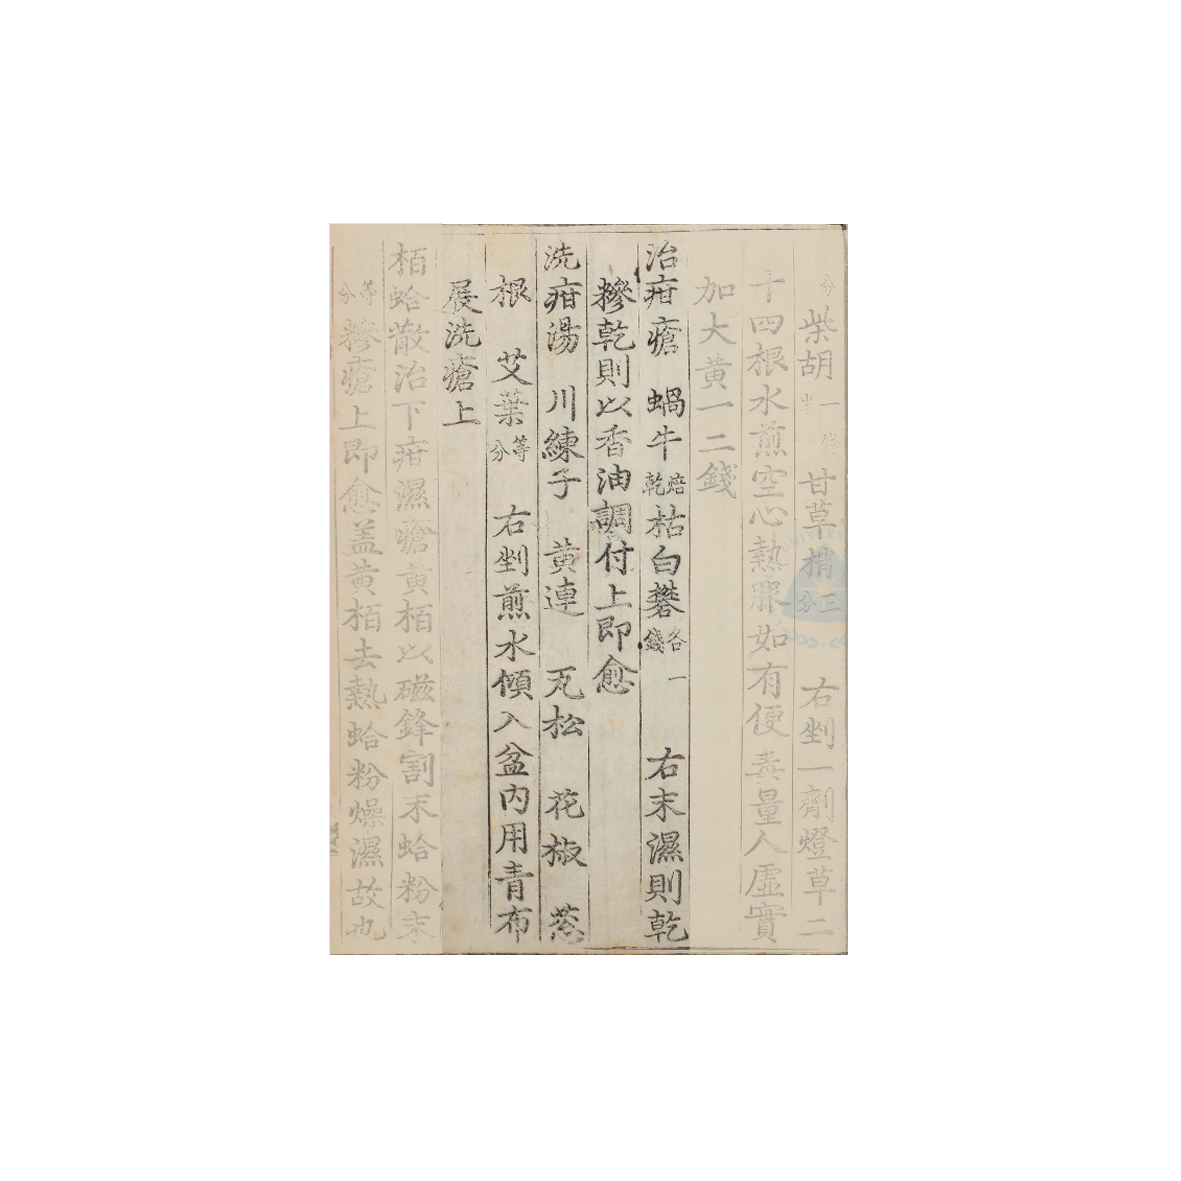 分柴胡一半錢甘草梢三分右剉一劑燈草二
十四根水煎空心熱服如有便毒量人虛實
加大黃一二錢
治疳瘡蝸牛焙乾枯白礬各一錢右末濕則乾
糝乾則以香油調付上即愈
洗疳湯川練子黃連瓦松花椒葱
根艾葉等分右剉煎水傾入盆內用青布
展洗瘡上
栢蛤散治下疳濕瘡黃栢以磁鋒割末蛤粉末
等分糝瘡上即愈盖黃栢去熱蛤粉燥濕故也